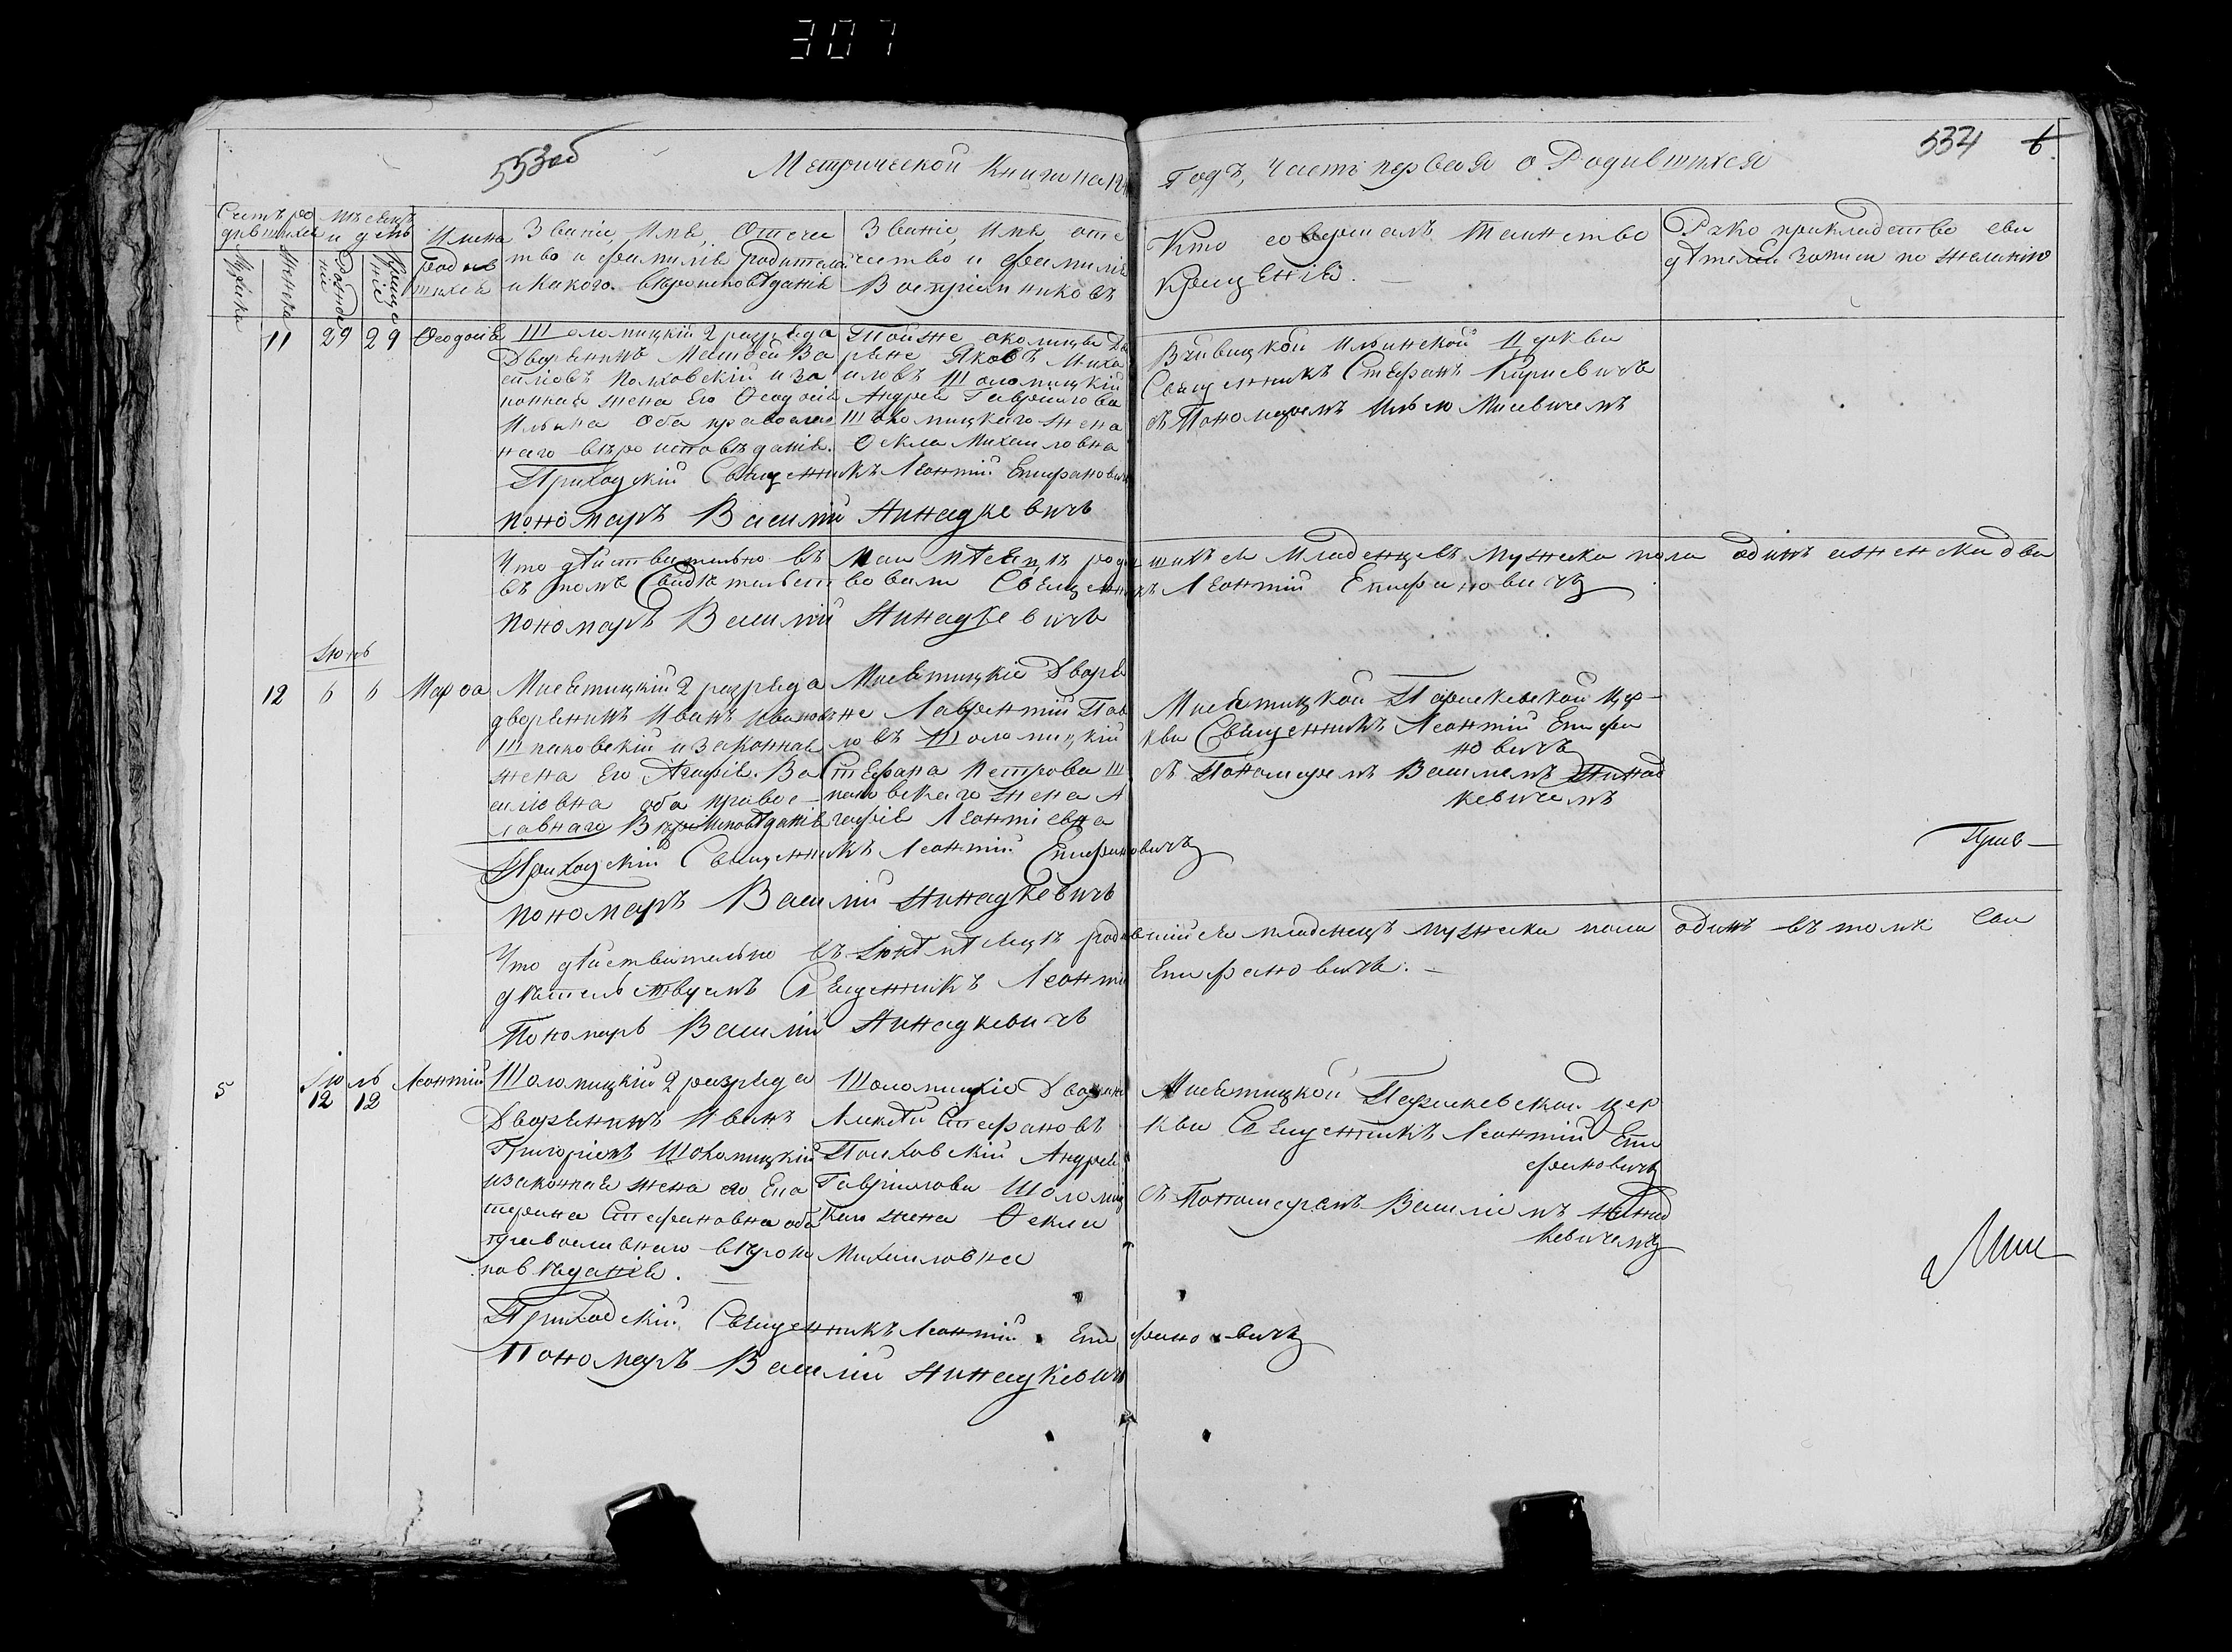 307
553 об
Метрической Книги на 184
Годъ, Часть первая о Родившихся
534 6
Счетъ ро
дившихся
Мужска
Женска
Мѣсяцъ
и день
рожденіе
крещеніе
Имена
родив
шихся
Званіе, Имя, Отече
тво и фамилія родителей
и какого вѣроисповѣданія
Званіе, Имя оте
чество и фамилія
Воспріемниковъ
Кто совершалъ таинство
Крещенія.
Рукоприкладство сви
дѣтелей записи по желанію
11 29 29 Ѳеодосія
Шоломицкій 2 разряда
Дворянинъ Матвей Ва
силіовъ Полховскій и за
конная жена Его Ѳеодосія
Ильина Оба православ
наго вѣроисповѣданія.
Тойже околицы Дво
ряне Яковъ Миха
иловъ Шоломицкій
Андрея Гавріилова
Шоломицкаго жена
Ѳекла Михаиловна
Ильинской Церкви
Священникъ Стефанъ
съ Пономаремъ Ильею Мисевичемъ
Приходскій Священникъ Леонтій Епифанович
пономаръ Василій Линадкевичъ
Что дѣйствительно въ Маи мѣсяцѣ родившихся Младенцевъ мужска пола одинъ а женска два
въ томъ Свидѣтельствовали Священникъ Леонтій Епифановичъ
пономаръ Василій Линадкевичъ
Іюнь
12 6 6 Марѳа
Мисятицкій 2 разряда
дворянинъ Иванъ Ивановъ
Шпаковскій и законная
жена Его Агафія Ва
силіовна оба правос
лавнаго Вѣроисповѣданія
Мисятицкіе Дворя
не Лаврентій Пав
ловъ Шоломицкій
Стефана Петрова Ш
паковскаго жена А
гафія Леонтіевна
Мисятицкой Параскевской Цер
кви Священникъ Леонтій Епифа
новичъ
съ Пономаремъ Василіемъ Линад
кевичемъ
Приходскій Священникъ Леонтій Епифановичъ
пономаръ Василій Линадкевичъ
Что дѣйствительно въ Іюнѣ мѣсяцѣ родившійся младенецъ мужска пола одинъ въ томъ Сви
дѣтельствуемъ Священникъ Леонтій Епифановичъ.
Пономаръ Василій Линадкевичъ
Іюль
5 12 12 Леонтій
Шоломицкій 2 разряда
Дворянинъ Иванъ
Григоріевъ Шоломицкій
и законная жена его Ека
терина Стефановна оба
православнаго вѣроис
повѣданія.
Шоломицкіе Дворяне
Алексѣй Стефановъ
Полховскій Андрея
Гавріилова Шоломиц
каго жена Ѳекла
Михаиловна
Мисятицкой Параскевской Цер
кви Священникъ Леонтій Епи
фановичъ
съ Пономаремъ Василіемъ Линад
кевичемъ
Приходскій Священникъ Леонтій Епифановичъ
Пономаръ Василій Линадкевичъ